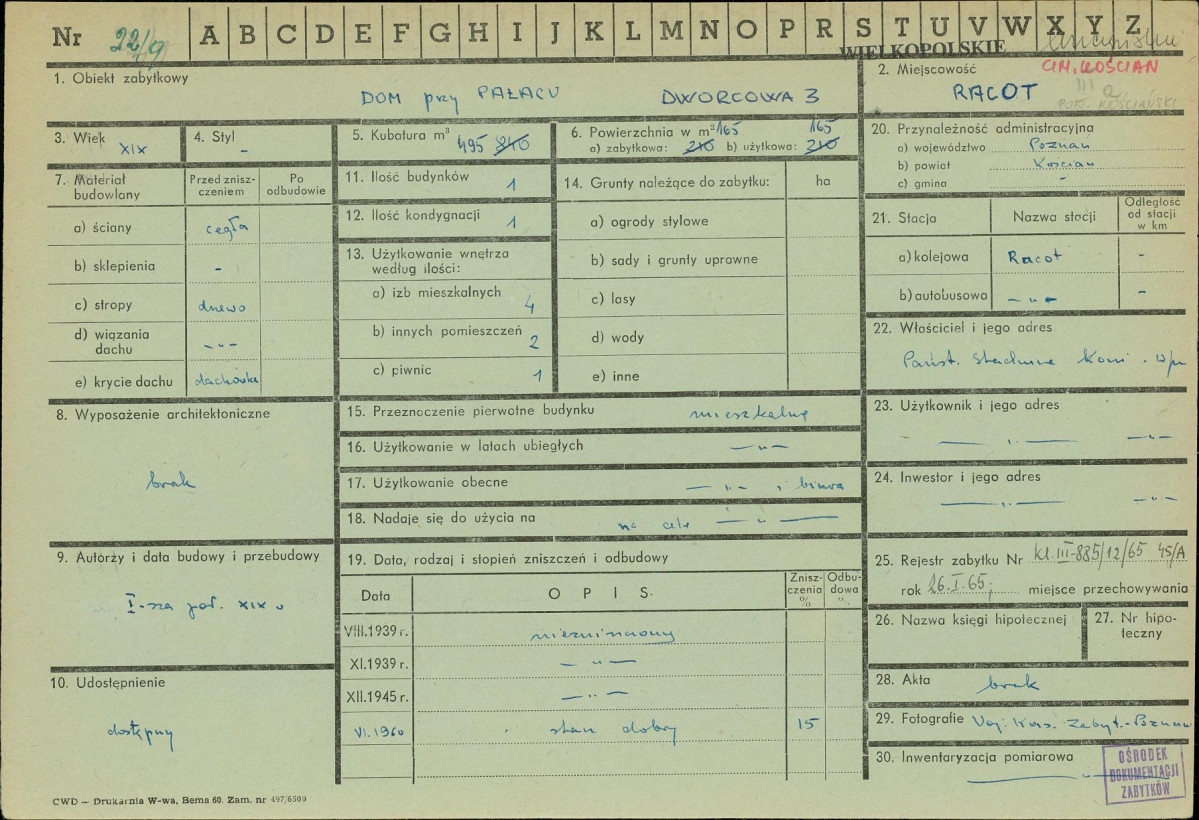 Nr 22/9 A B C D E F G H I J K L M N O P R S T U V W X Y Z
WIELKOPOLSKIE
1. Obiekt zabytkowy
DOM przy PAŁACU DWORCOWA 3
2. Miejscowość
GM. KOŚCIAN
RACOT
III
POW. KOŚCIAŃSKI
3. Wiek
XIX
4. Styl
-
5. Kubatura m³ 495 840
6. Powierzchnia w m³ 165 165
a) zabytkowa: 210 b) użytkowa: 210
20. Przynależność administracyjna
a) województwo Poznań
b) powiat Kościan
c) gmina -
7. Materiał budowlany
Przed zniszczeniem
Po odbudowie
a) ściany cegła
b) sklepienia -
c) stropy drewo
d) wiązania dachu -„-
e) krycie dachu dachówka
11. Ilość budynków 1
12. Ilość kondygnacji 1
13. Użytkowanie wnętrza
według ilości:
a) izb mieszkalnych 4
b) innych pomieszczeń 2
c) piwnic 1
14. Grunty należące do zabytku: ha
a) ogrody stylowe
b) sady i grunty uprawne
c) lasy
d) wody
e) inne
21. Stacja
Nazwa stacji
Odległość od stacji w km
a) kolejowa Racot -
b) autobusowa -„- -
22. Właściciel i jego adres
Państ. Stadnina Koni - w/m
8. Wyposażenie architektoniczne
brak
15. Przeznaczenie pierwotne budynku mieszkalne
16. Użytkowanie w latach ubiegłych -„-
17. Użytkowanie obecne -„- , biura
18. Nadaje się do użycia na na cele -„-
23. Użytkownik i jego adres
-„- -„-
24. Inwestor i jego adres
-„- -„-
9. Autorzy i data budowy i przebudowy
I-sza poł. XIX w
10. Udostępnienie
dostępny
19. Data, rodzaj i stopień zniszczeń i odbudowy
Data
OPIS
Zniszczenia %
Odbudowa
VIII.1939 r. niezniszczony
XI.1939 r. -„-
XII.1945 r. -„-
VI.1960 stan dobry 15
25. Rejestr zabytku Nr kl.III-885/12/65 45/A
rok 26.I.65; miejsce przechowywania
26. Nazwa księgi hipotecznej
27. Nr hipoteczny
28. Akta brak
29. Fotografie Woj. Kons. Zabyt.-Poznań
30. Inwentaryzacja pomiarowa
-„-
OŚRODEK
DOKUMENTACJI
ZABYTKÓW
CWD — Drukarnia W-wa, Bema 60. Zam. nr 497/6509